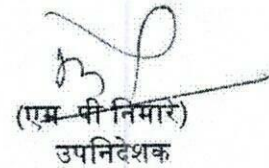 (एम पी निमारे)
उपनिदेशक